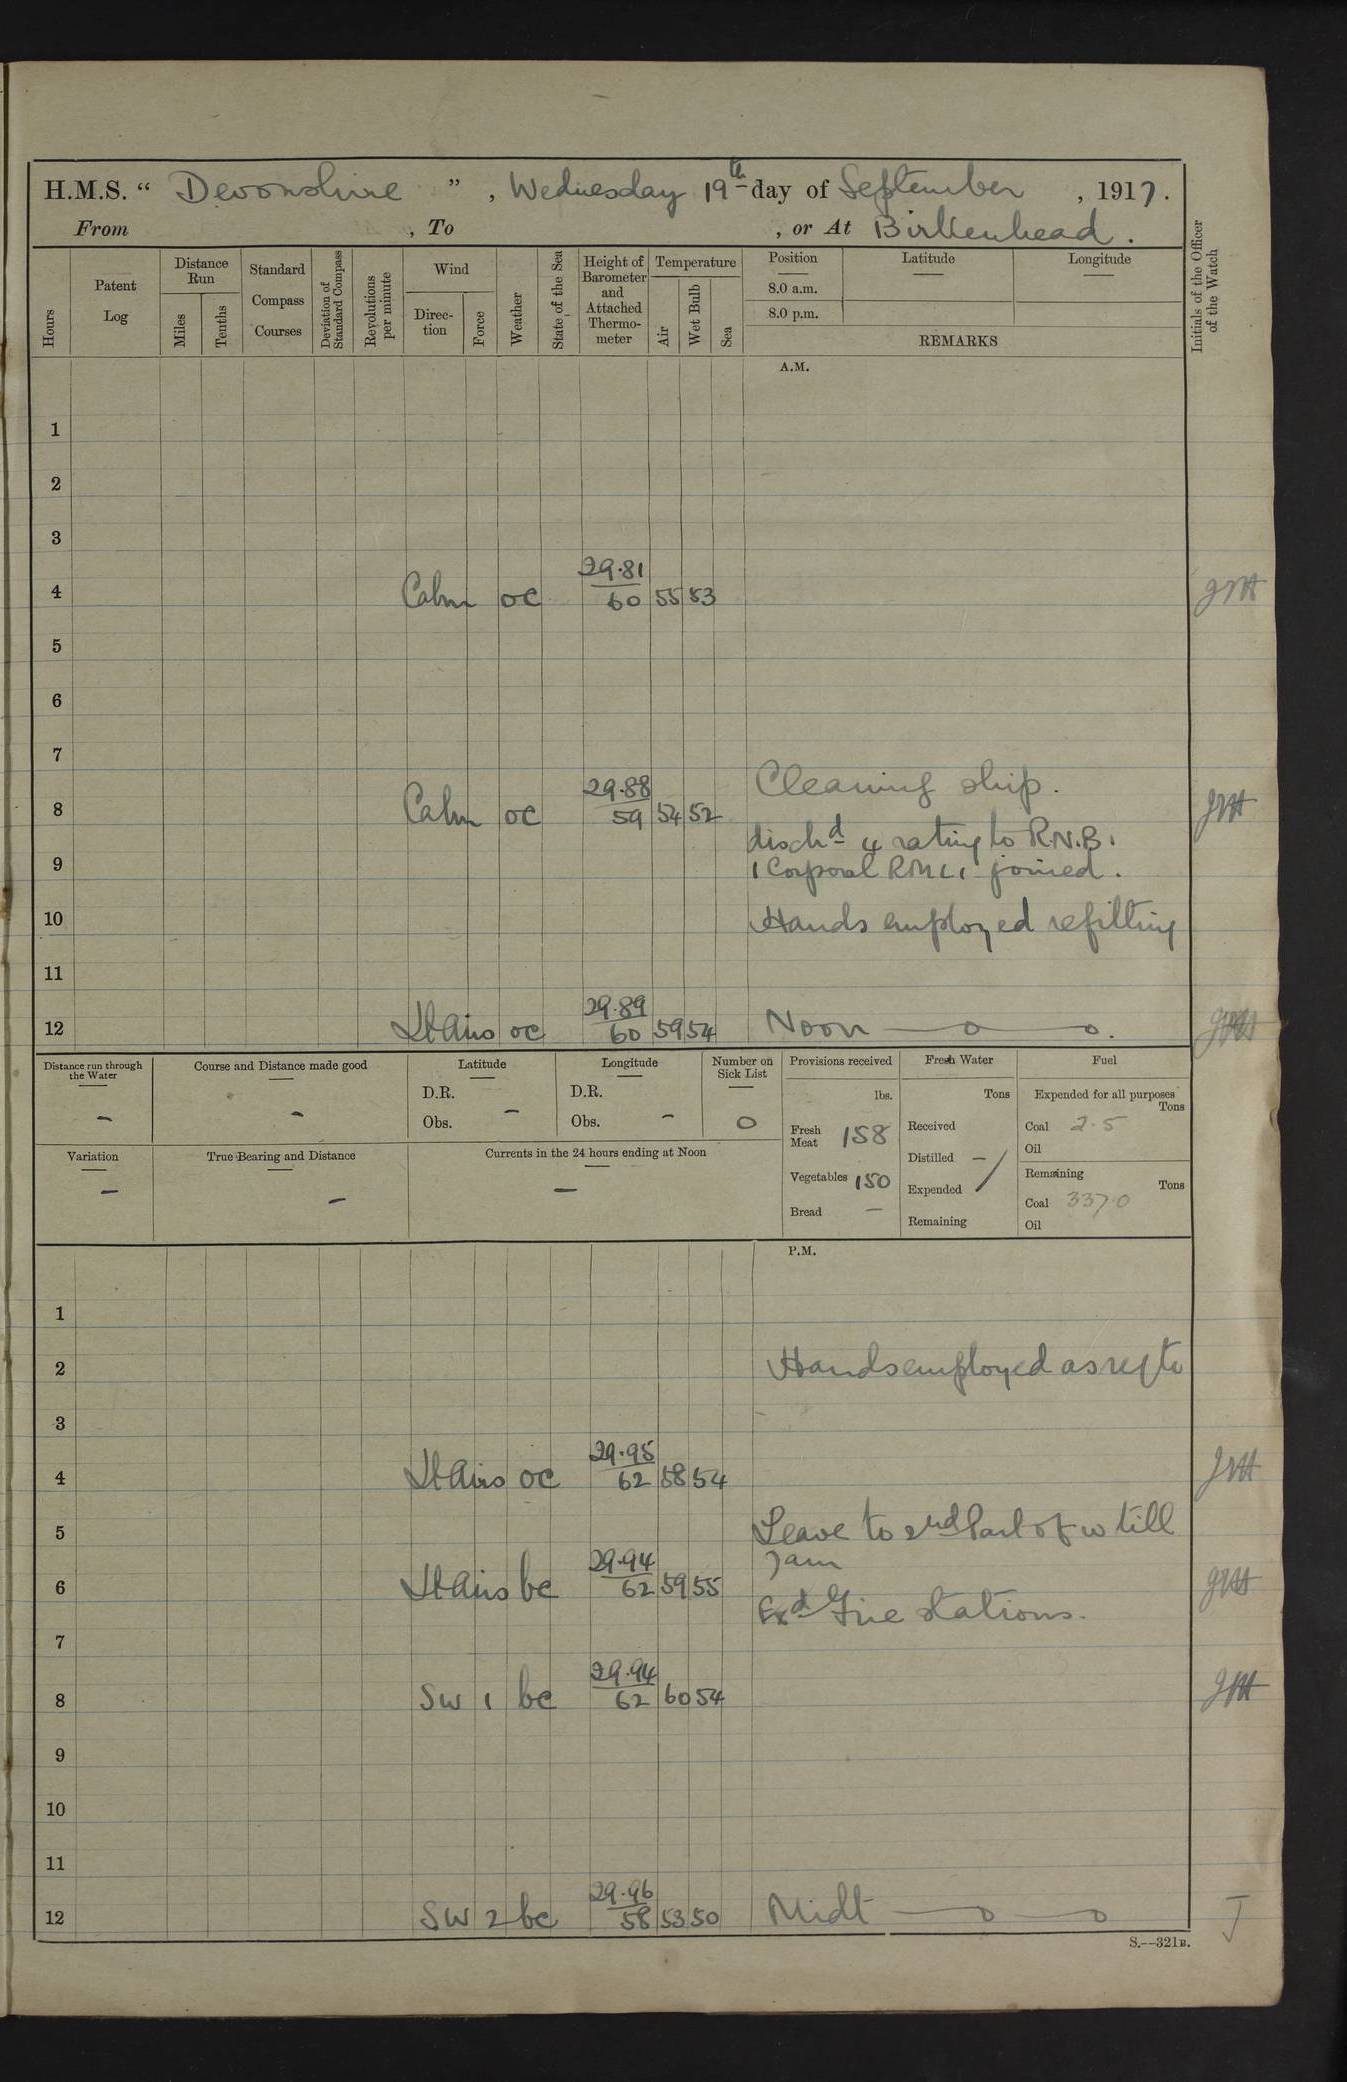 H.M.S. “ Devonshire ” , Wednesday 19th day of September , 1917.
From , To , or At Birkenhead .
Hours
Patent Log
Distance Run
Miles
Tenths
Standard Compass Courses
Deviation of Standard Compass
Revolutions per minute
Wind
Direction
Force
Weather
State of the Sea
Height of Barometer and Attached Thermometer
Temperature
Air
Wet Bulb
Sea
Position
8.0 a.m.
8.0 p.m.
Latitude
Longitude
REMARKS
Initials of the Officer of the Watch
A.M.
1
2
3
4 Calm oc 29.81 60 55 53
5
6
7
Cleaning ship.
8 Calm oc 29.88 59 54 52
dischd 4 rating to R.N.B.
9 1 Corporal joined.
10 Hands employed refitting
11
12 Lt Airs oc 29.89 60 59 54 Noon
Distance run through the Water —
Course and Distance made good —
Latitude
D.R.
Obs. —
Longitude
D.R.
Obs. —
Number on Sick List
0
Provisions received
lbs.
Fresh Meat 158
Vegetables 150
Bread —
Fresh Water
Tons
Received
Distilled —
Expended
Remaining
Fuel
Expended for all purposes
Tons
Coal 2.5
Oil
Remaining
Tons
Coal 337.0
Oil
Variation —
True Bearing and Distance —
Currents in the 24 hours ending at Noon —
P.M.
1
2 Hands employed as reqte
3
4 Lt Airs oc 29.95 62 58 54
5 Leave to 2nd Part of w till
7am
6 Lt Airs bc 29.94 62 59 55
Exd Fire stations.
7
8 SW 1 bc 29.94 62 60 54
9
10
11
12 SW 2 bc 29.96 58 53 50 Midt
J
S.—321B.